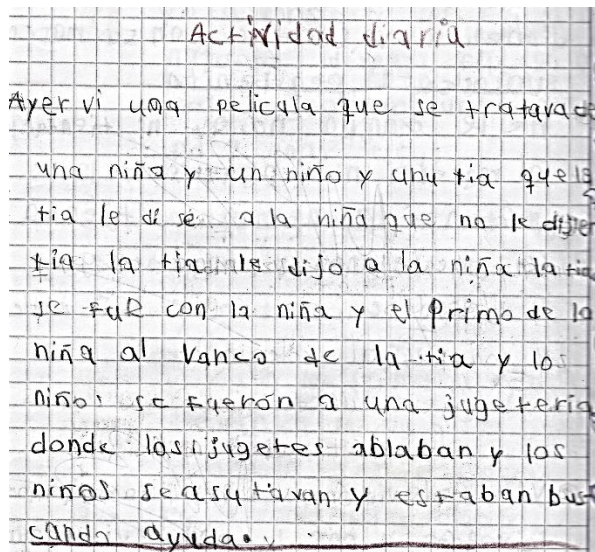 Actividad diaria
Ayer vi una pelicula que se tratava de
una niña y un niño y una tia que la
tia le di se a la niña que no le dijier
tia la tia le dijo a la niña la tia
se fue con la niña y el primo de la
niña al vanco de la tia y los
niños se fuerón a una jugeteria
donde los jugetes ablaban y los
niños seasutavan y estaban bus
cando ayuda.